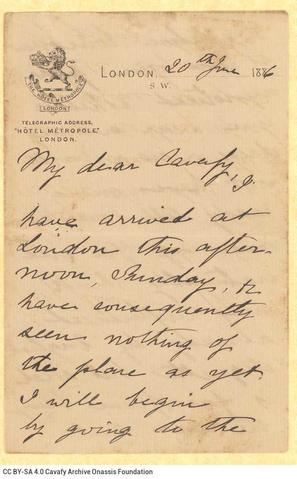 THE HOTEL METROPOLE
LONDON
LONDON. 20th June 1886
S.W.
TELEGRAPHIC ADDRESS,
"HÔTEL MÉTROPOLE,"
LONDON.
My dear Cavafy, I
have arrived at
London this after-
noon, Sunday, &
have consequently
seen nothing of
the place as yet
I will begin
by going to the
CC BY-SA 4.0 Cavafy Archive Onassis Foundation